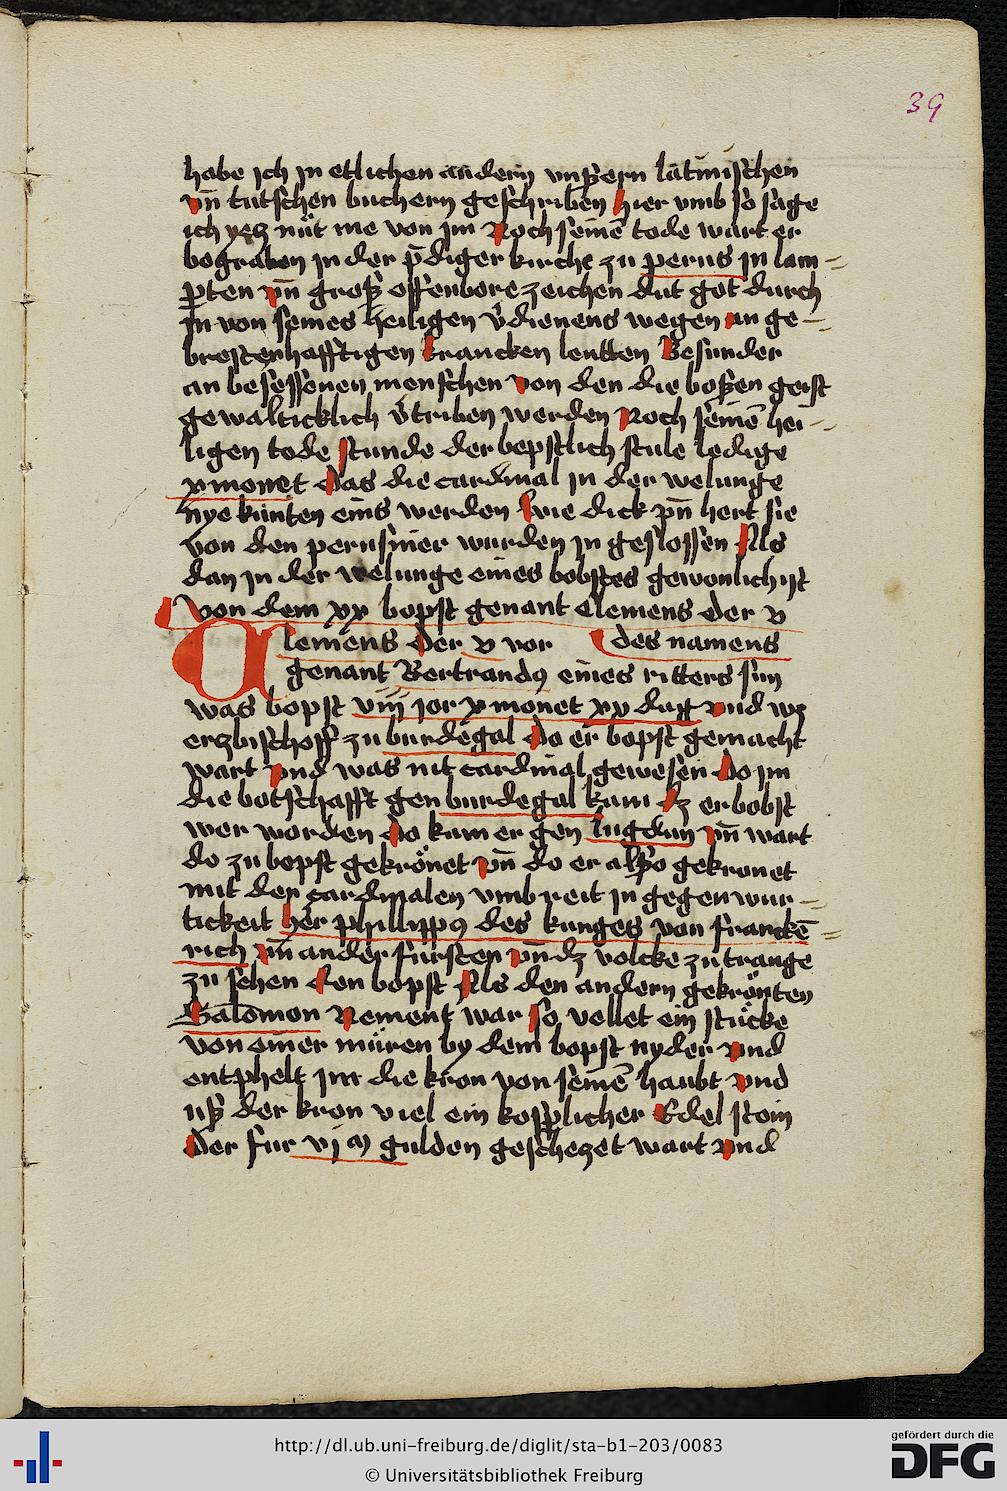 39
habe ich in etlichen andern vnßern latinischen
vn̄ tutschen buchern geschriben Hier vmb so sage
ich yetz nüt me von im Noch seinē tode wart er
begraben in der p̄diger kirche zu perus in lam-
parten vn̄ groß offenbore zeichen dut got durch
in von seines heiligen v̄dienens wegen an ge-
brestenhafftigen krancken leutten Besunder
an besessenen menschen von den die boßen geist
gewalticklich v̄triben werden Noch seinē hei-
ligen tode stunde der bepstlich stule ledige
x monet Das die cardinal in der welunge
nye kunten eins werden Wie dick vn̄ hert sie
von den perusiner wurden in geslossen Als
dan in der welunge eines bobstes gewonlich ist
Von dem xx bopst genant Clemens der v
des namens
Clemens der v vor
genant Bertrandꝰ eines ritters sun
was bopst viij jor x monet xx dag vnd wz
erzbischoff zu burdegal Do er bopst gemacht
wart vnd was nit cardinal gewesen Do im
die botschafft gen burdegal kam dz er bobst
wer worden Do kam er gen lugdun vn̄ wart
do zu bopst gekrönet vn̄ do er also gekronet
mit den cardinalen vmb reit in gegenwur-
tickeit her phillippꝰ des kunges von franckē
rich vn̄ ander fursten vn̄ dz volcke zu trange
zu sehen den bopst Als den andern gekrönten
Salomon Nement war so vellet ein stücke
von einer müren by dem bopst nyder vnd
entphelt im die kron von seinē haubt vnd
uß der kron viel ein kosplicher Edel stein
Der fur vj m gulden geschetzet wart vnd
http://dl.ub.uni-freiburg.de/diglit/sta-b1-203/0083
© Universitätsbibliothek Freiburg
gefördert durch die
DFG